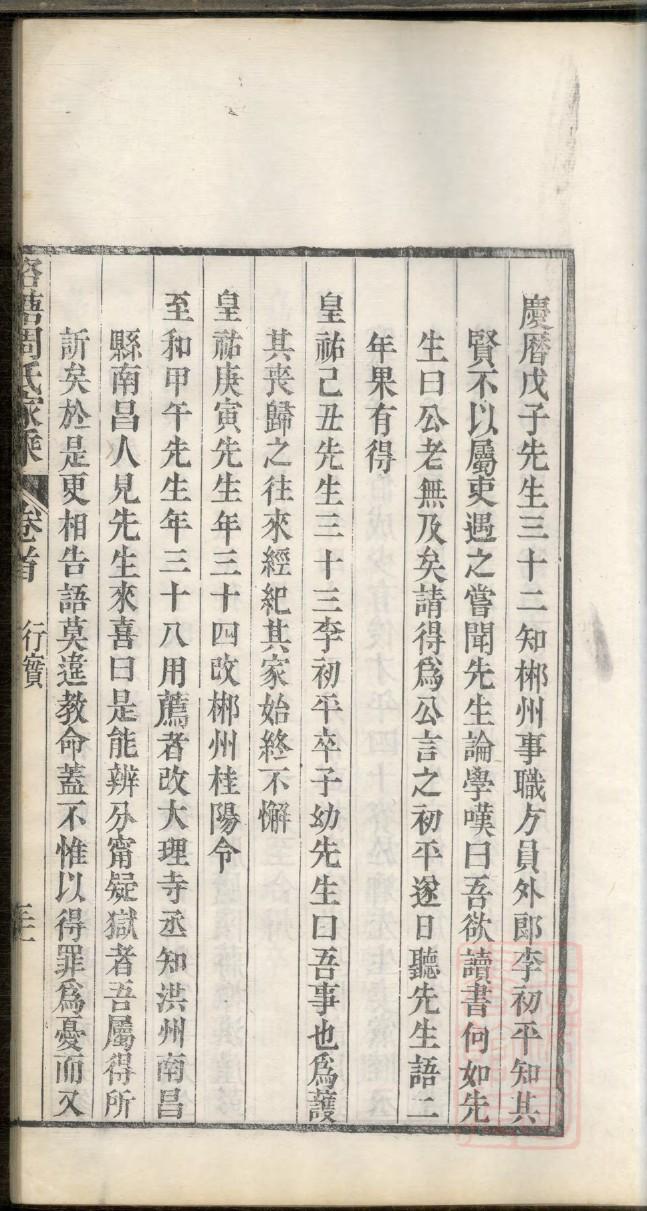 慶曆戊子先生三十二知郴州事職方員外郎李初平知其
賢不以屬吏遇之嘗聞先生論學嘆曰吾欲讀書何如先
生曰公老無及矣請得爲公言之初平遂日聽先生語二
年果有得
皇祐己丑先生三十三李初平卒子幼先生曰吾事也爲護
其喪歸之往來經紀其家始終不懈
皇祐庚寅先生年三十四改郴州桂陽令
至和甲午先生年三十八用薦者改大理寺丞知洪州南昌
縣南昌人見先生來喜曰是能辨分甯疑獄者吾屬得所
訴矣於是更相告語莫違教命蓋不惟以得罪爲憂而又
周氏家乘 卷首 行實